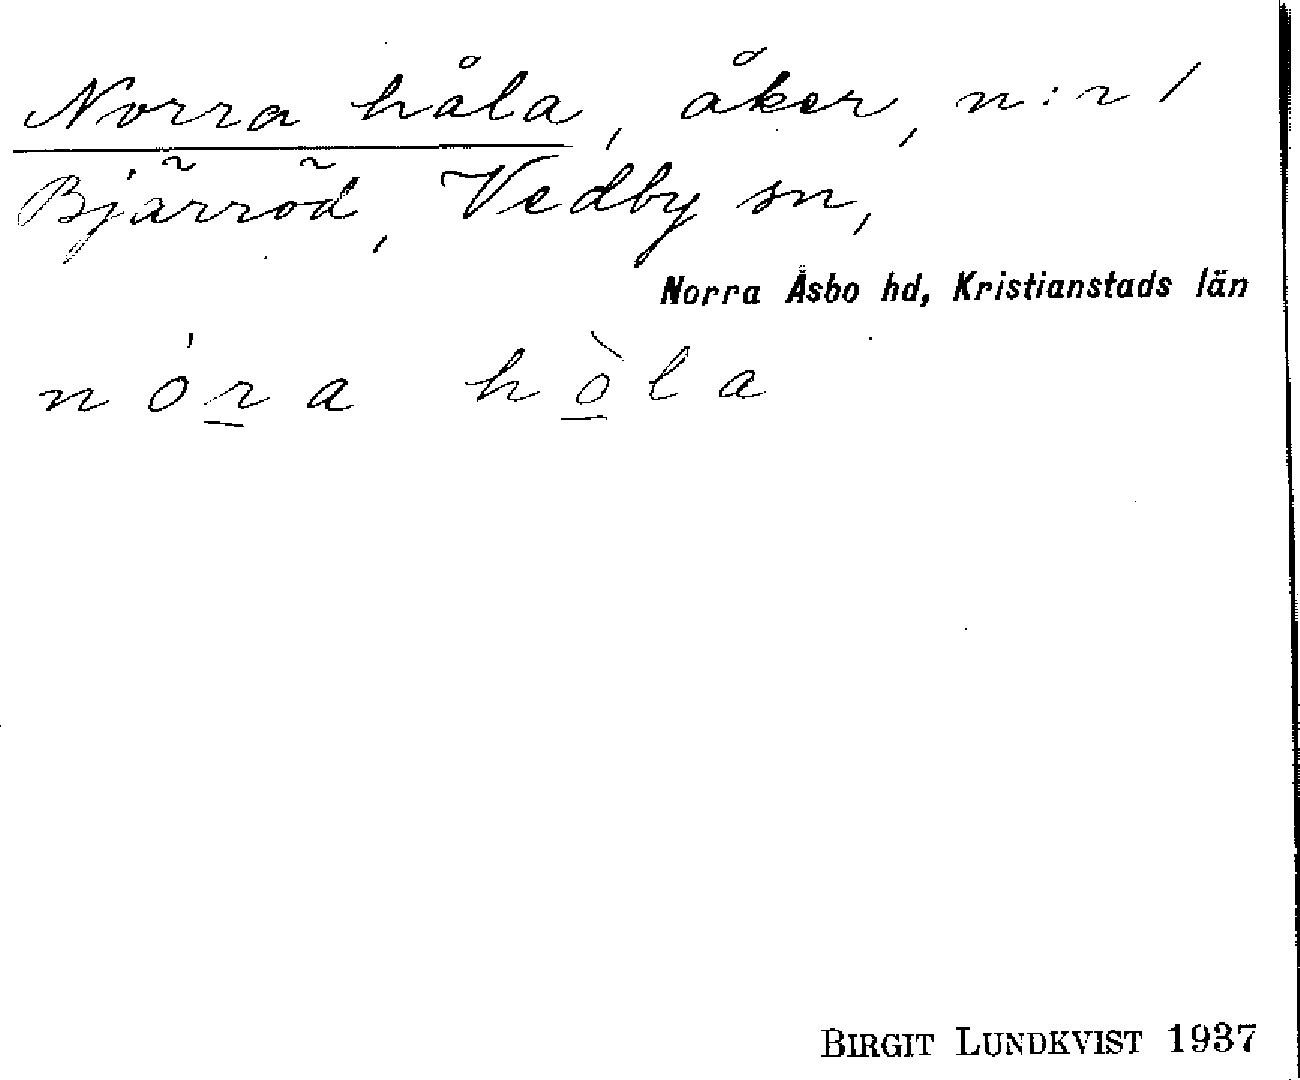 Norra håla, åker, n:r 1
Bjärröd, Vedby sn,
Norra Åsbo hd, Kristianstads län
nór̲a hò̲la
BIRGIT LUNDKVIST 1937